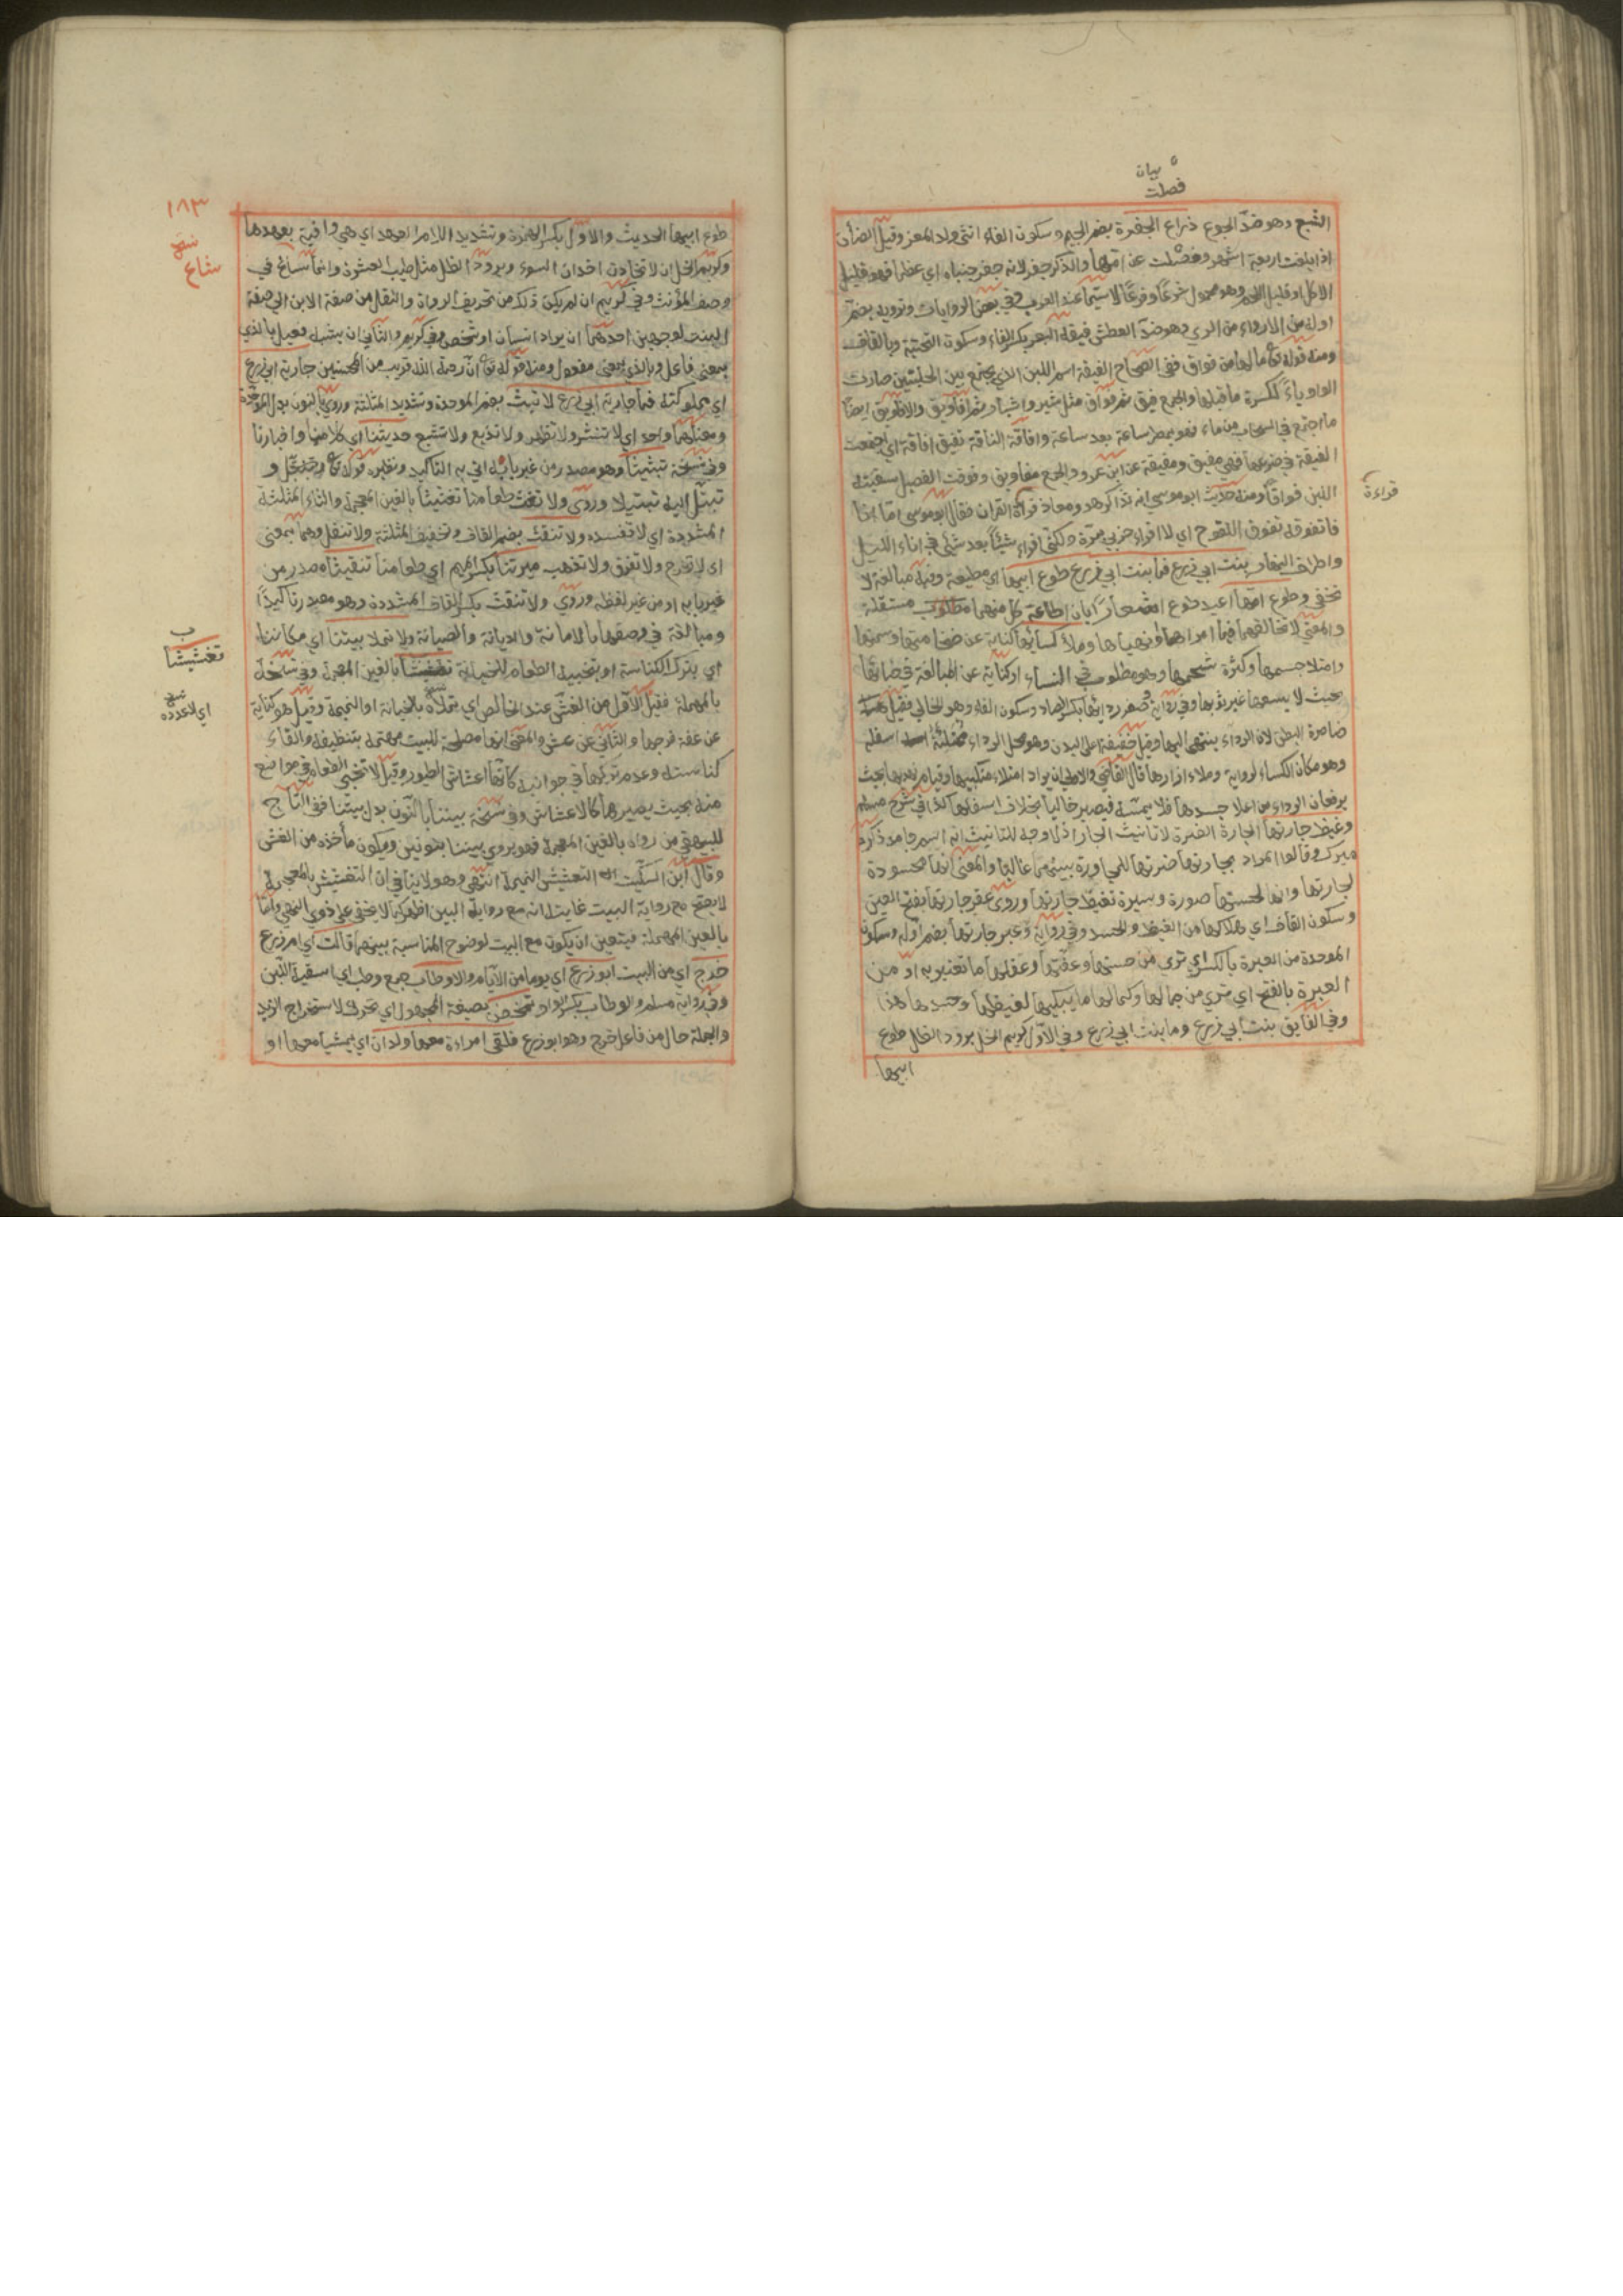 بيان
فصلت
الشبع وهو ضدّ الجوع ذراع الجفرة بضم الجيم وسكون الفاء انثى ولد المعز وقيل الضأن
اذا بلغت اربعة اشهر وفصلت عن امها والذكر جفر لانه جفر جنباه اي عظما فهو قليل
الاكل او قليل اللحم وهو محمول شرعًا وعرفًا لاسيّما عند العرب وفي بعض الروايات وترويه بضم
اوله من الارواء من الري وهو ضدّ العطش فيقة اليعرة بكسر الفاء وسكون التحتية وبالقاف
ومنه قوله تع ما لها من فواق ففي الصحاح الفيقة اسم اللبن الذي يجتمع بين الحلبتين صارت
الواو ياءً لكسرة ما قبلها والجمع فيق ثم فواق مثل شبر واشبار ثم افاويق والافاويق ايضًا
ما اجتمع في السحاب من ماء فهو يمطر ساعة بعد ساعة وافاقة الناقة تفيق افاقة اي اجتمعت
الفيقة في ضرعها فهي مفيق ومفيقة عن ابن عمرو والجمع مفاويق وفوقت الفصيل سقيته
اللبن فواقًا ومنه حديث ابو موسى انه تذاكر هو ومعاذ قرآة القران فقال ابو موسى امّا انا
قراءة
فاتفوقه تفوق اللقوح اي لا اقراء حزبي مرّة ولكني اقراء شيئًا بعد شئ في اناء الليل
واطراف النهار بنت ابي زرع فما بنت ابي زرع طوع ابيها اي مطيعة وفيه مبالغة لا
تخفى وطوع امّها اعيد طوع اشعارًا بان اطاعة كل منهما مطلوب مستقلة
والمعنى لا تخالفهما فيما امراها ونهياها وملأ كسائها كناية عن ضخامتها وسمنها
وامتلا جسمها وكثرة شحمها وهو مطلوب في النساء او كناية عن المبالغة في حيائها
بحيث لا يسعها غير ثوبها وفي رواية وصفر ردائها بكسر الصاد وسكون الفاء وهو الخالي فقيل
ضامرة البطن لان الرداء ينتهي اليها وقيل خفيفة اعلى البدن وهو محل الرداء ممتلئة اسفله
وهو مكان الكساء لرواية وملاء ازارها قال القاضي والاولى ان يراد امتلاء منكبيها وقيام نهديها بحيث
يرفعان الرداء من اعلا جسدها فلا يمسّه فيصير خاليا بخلاف اسفلها كذا في شرح مسلم
وغيظ جارتها الجارة الضرة لا تانيث الجار اذ لا وجه للتانيث انه اسم جامد ذكره
ميرك وقالوا المراد بجارتها ضرتها للمجاورة بينهما غالبًا والمعنى انها محسودة
لجارتها وانها لحسنها صورة وسيرة تغيظ جارتها وروى عقر جارتها بفتح العين
وسكون القاف اي هلاكها من الغيظ والحسد وفي رواية وعبر جارتها بضم اوله وسكون
الموحدة من العبرة بالكسر اي ترى من حسنها وعفّتها وعقلها ما تعتبر به او من
العبرة بالفتح اي ترى من جمالها وكمالها ما يبكيها لغيظها وحسدها هذا
وفي الفايق بنت ابي زرع وما بنت ابي زرع وفي الأول كريم الخل برود الظل طوع
ابيها
١٨٣
طوع ابيها الحديث والاول بكسر الهمزة وتشديد اللام العهد اي هي وافية بعهدها
وكريم الخل ان لا تخادن اخدان السوء وبرود الظل مثل طيب العشرة وانما ساغ في
نسخة
شاع
وصف المؤنث وفي كريم ان لم يكن ذلك من تحريف الرواة والنقل من صفة الابن الى صفة
البنت لوجهين احدهما ان يراد انسان او شخص وفي كريم والثاني ان يشبه فعيل بالذي
بمعنى فاعل وبالذي بمعنى مفعول ومنه قوله تع انّ رحمة الله قريب من المحسنين جارية ابي زرع
اي مملوكته فما جارية ابي زرع لا تبث بضم الموحدة وتشديد المثلثة وروي بالنون بدل الموحدة
ومعناهما واحد اي لا تنشر ولا تظهر ولا تذيع ولا تشيع حديثنا اي كلامنا واخبارنا
وفي نسخة تبثيثًا وهو مصدر من غير بابه اتي به التاكيد ونظيره قوله تع وجل و
تبتّل اليه تبتيلا وروى ولا تغث طعامنا تغثيثًا بالغين المعجمة والثاء المثلثة
المشددة اي لا تفسده ولا تنقث بضم القاف وتخفيف المثلثة ولا تنقل وهما بمعنى
اي لا تخرج ولا تفرق ولا تذهب ميرتنا بكسر الميم اي طعامنا تنقيثًا مصدر من
غير بابه او من غير لفظه وروي ولا تنقث بكسر القاف المشددة وهو مصدر تاكيدًا
ومبالغة في وصفها بالامانة والديانة والصيانة ولا تملا بيتنا اي مكاننا
ب
تغشيشا
اي بترك الكناسة او بتخبية الطعام للخيانة تغشيشًا بالغين المعجمة وفي نسخة
نسخة
بالمهملة فقيل الاول من الغش عند الخالص اي تملاه بالخيانة او النميمة وقيل هو كناية
عن عفة فرجها والثاني عن عش والمعنى انها مصلحة للبيت مهتمة بتنظيفه والقاء
كناسته وعدم تركها في جوانبه كانّها اعشاش الطيور وقيل لا تخبى الطعام في مواضع
منه بحيث يصيرها كالاعشاش وفي نسخة بيننا بالنّون بدل بيتنا ففي التاج
للبيهقي من رواه بالغين المعجمة فهو يروي بيننا بنونين ويكون مأخذه من الغش
وقال ابن السكّيت التعشيش النميمة انتهى وهو لا ينافي ان التغشيش بالمعجمة
لا يصح مع رواية البيت غايته انه مع رواية البين اظهر كما لا يخفى على ذوي النهى وامّا
بالعين المهملة فيتعين ان يكون مع البيت لوضوح المناسبة بينهما قالت اي ام زرع
خرج اي من البيت ابو زرع اي يوما من الأيام والاوطاب جمع وطب اي اسقية اللّبن
وفي رواية مسلم والوطاب بكسر الواو تمخض بصيغة المجهول اي تحرك لاستخراج الزبد
والجملة حال من فاعل خرج وهو ابو زرع فلقى امراءة معها ولدان اي يمشيا معها او